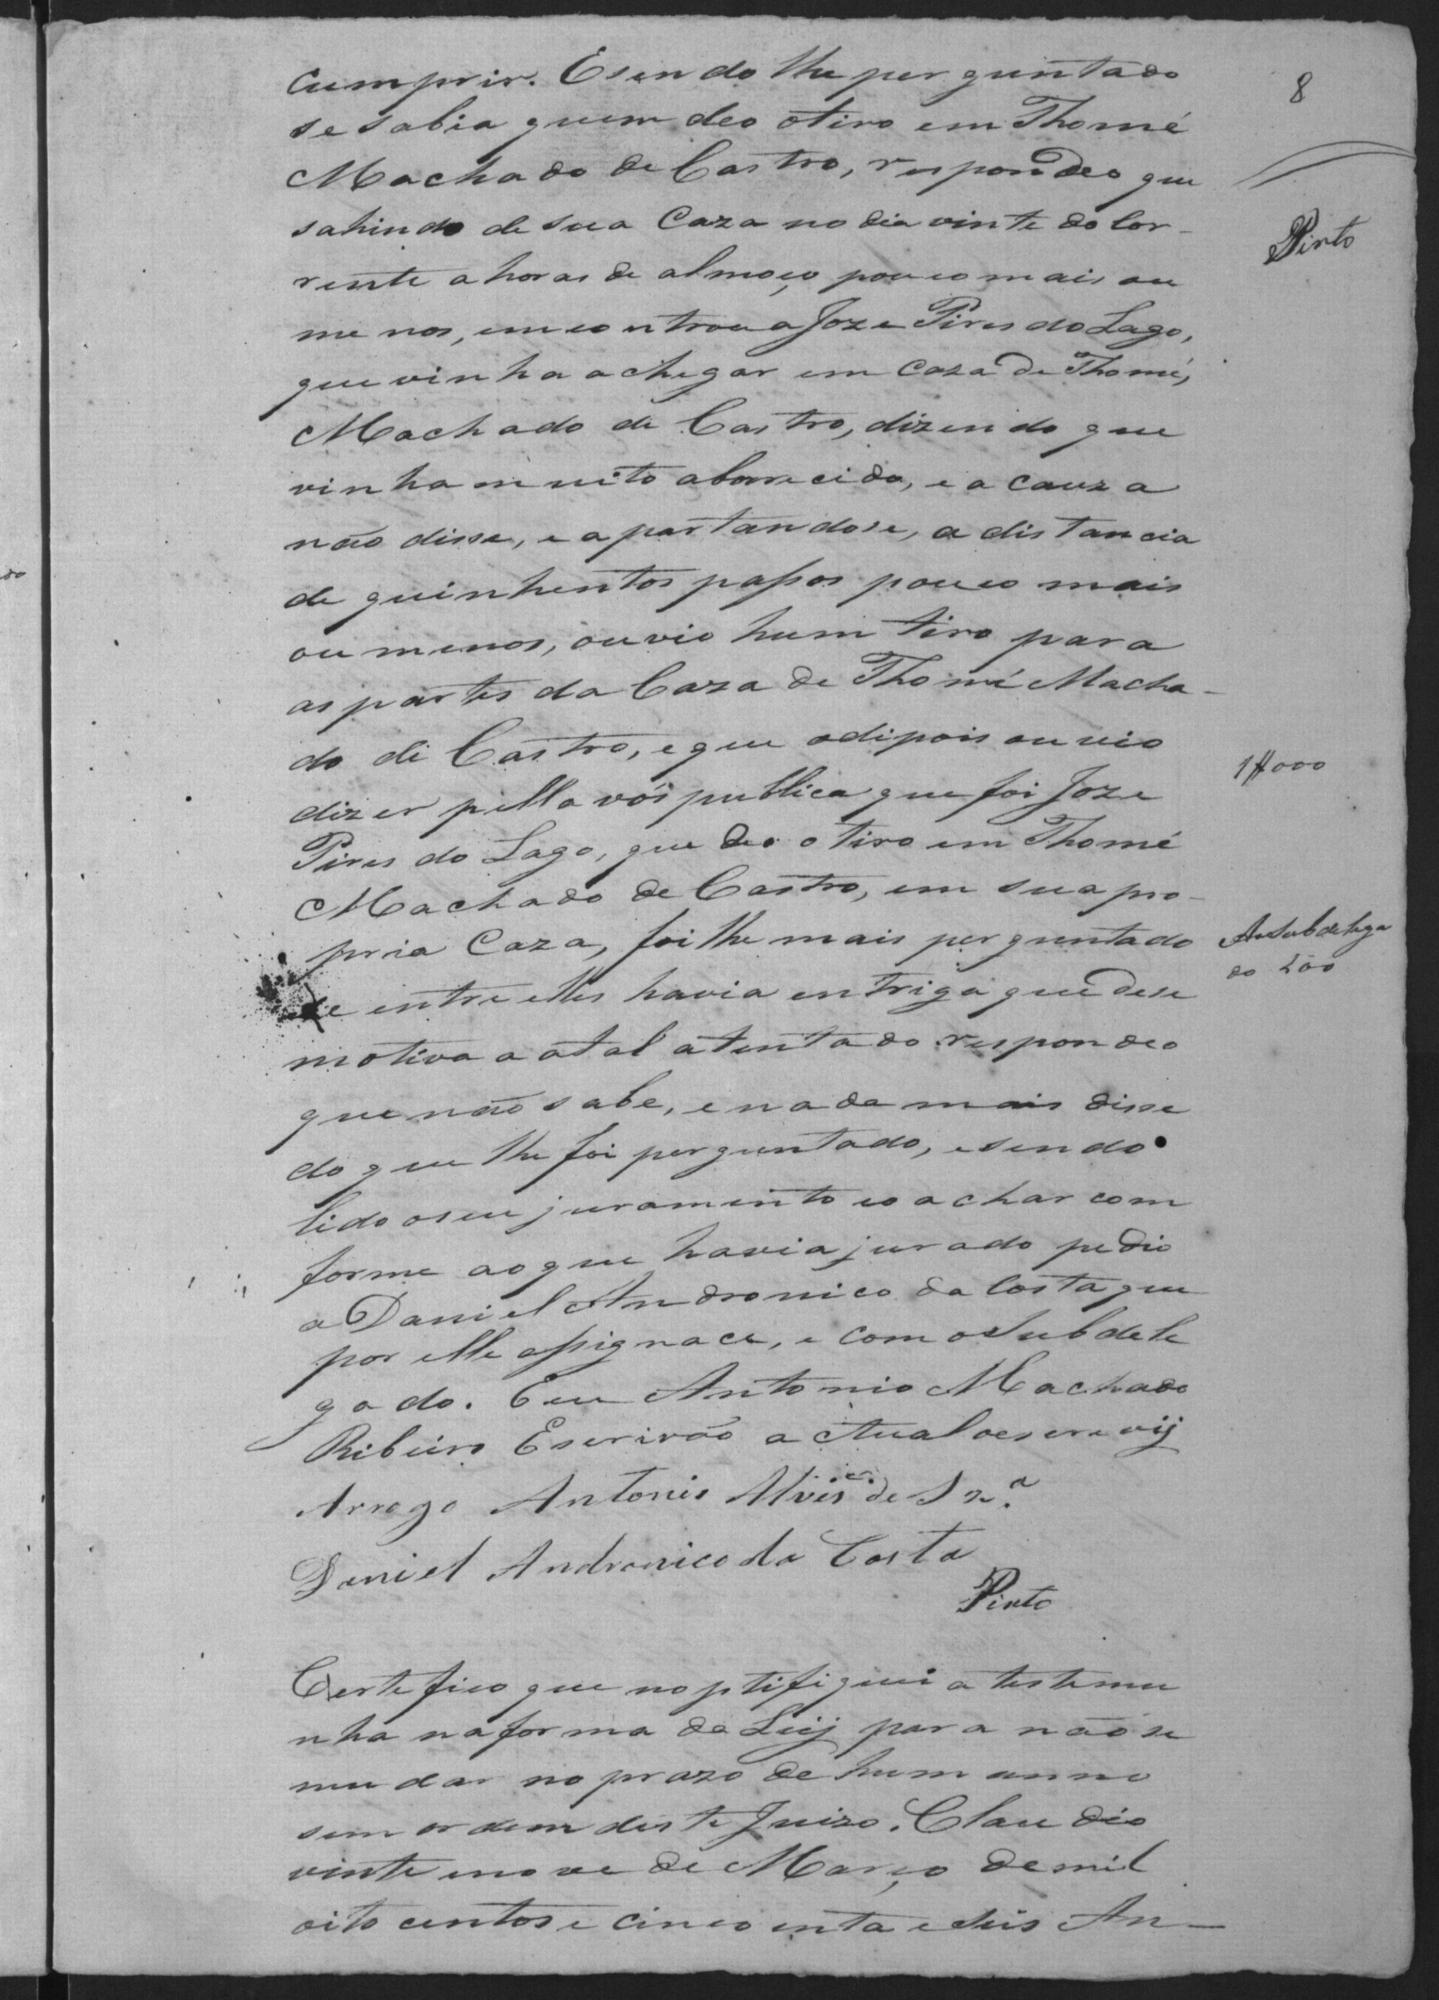 8
Pinto
cumprir. E sendo lhe perguntado
se sabia quem deo o tiro em Thomé
Machado de Castro, respondeo que
sahindo de sua Caza no dia vinte do Cor-
rente a horas de almoço pouco mais ou
menos, emcontrou a Joze Pires do Lago,
que vinha a chegar em Caza de Thomé,
Machado de Castro, dizendo que
vinha muito aborrecido, e a cauza
não disse, e apartandose, a distancia
de quinhentos passos pouco mais
ou menos, ouvio hum tiro para
as partes da Caza de Thomé Macha-
do di Castro, e que adipois ouvio
dizer pella vós publica que foi Joze
Pires do Lago, que deo o tiro em Thomé
Machado de Castro, em sua pro-
pria Caza, foi lhe mais perguntado
se entre elles havia entriga que dese
motivo a atal atentado respondeo
que não sabe, e nada mais disse
do que lhe foi perguntado, e sendo
lido o seu juramento e o achar com
forme ao que havia jurado pedio
a Daniel Andronico da Costa que
por elle assignace, e com o Subdele
gado. Eu Antonio Machado
Ribeiro Escrivão actual o escrevij
Arrogo Antonio Alves de Sza.
Daniel Andronico da Costa
Pinto
1$000
Ao Subdelega
do 200
Certefico que noptifiquei a testemu
nha na forma da Leij para não se
mudar no prazo de hum anno
sem ordem deste Juizo. Claudio
vinte e nove de Março de mil
oito centos e cincoenta e seis An-